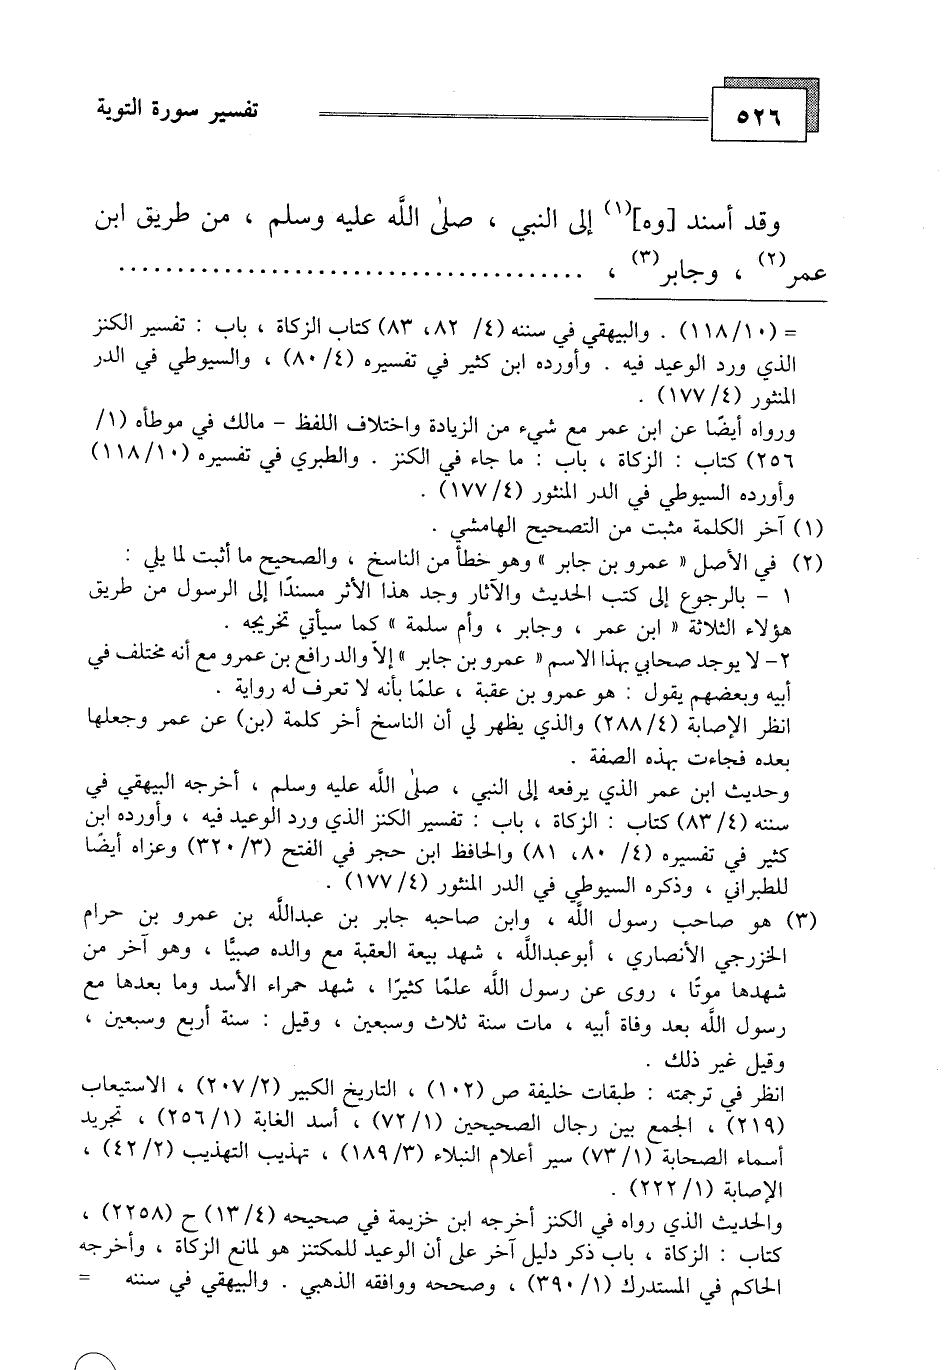 تفسير سورة التوبة
٥٢٦
وقد أسند [وه](١) إلى النبي ، صلى اللَّه عليه وسلم ، من طريق ابن
عمر(٢) ، وجابر(٣) ، ........................................
= (١١٨/١٠) . والبيهقي في سننه (٤/ ٨٢، ٨٣) كتاب الزكاة ، باب : تفسير الكنز
الذي ورد الوعيد فيه . وأورده ابن كثير في تفسيره (٨٠/٤) ، والسيوطي في الدر
المنثور (١٧٧/٤) .
ورواه أيضًا عن ابن عمر مع شيء من الزيادة واختلاف اللفظ – مالك في موطأه (١/
٢٥٦) كتاب : الزكاة ، باب : ما جاء في الكنز . والطبري في تفسيره (١١٨/١٠)
وأورده السيوطي في الدر المنثور (١٧٧/٤) .
(١) آخر الكلمة مثبت من التصحيح الهامشي .
(٢) في الأصل « عمرو بن جابر » وهو خطأ من الناسخ ، والصحيح ما أثبت لما يلي :
١ – بالرجوع إلى كتب الحديث والآثار وجد هذا الأثر مسندًا إلى الرسول من طريق
هؤلاء الثلاثة « ابن عمر ، وجابر ، وأم سلمة » كما سيأتي تخريجه .
٢– لا يوجد صحابي بهذا الاسم « عمرو بن جابر » إلاَّ والد رافع بن عمرو مع أنه مختلف في
أبيه وبعضهم يقول : هو عمرو بن عقبة ، علمًا بأنه لا تعرف له رواية .
انظر الإصابة (٢٨٨/٤) والذي يظهر لي أن الناسخ أخر كلمة (بن) عن عمر وجعلها
بعده فجاءت بهذه الصفة .
وحديث ابن عمر الذي يرفعه إلى النبي ، صلى اللَّه عليه وسلم ، أخرجه البيهقي في
سننه (٨٣/٤) كتاب : الزكاة ، باب : تفسير الكنز الذي ورد الوعيد فيه ، وأورده ابن
كثير في تفسيره (٤/ ٨٠، ٨١) والحافظ ابن حجر في الفتح (٣٢٠/٣) وعزاه أيضًا
للطبراني ، وذكره السيوطي في الدر المنثور (١٧٧/٤) .
(٣) هو صاحب رسول اللَّه ، وابن صاحبه جابر بن عبداللَّه بن عمرو بن حرام
الخزرجي الأنصاري ، أبوعبداللَّه ، شهد بيعة العقبة مع والده صبيًّا ، وهو آخر من
شهدها موتًا ، روى عن رسول اللَّه علمًا كثيرًا ، شهد حمراء الأسد وما بعدها مع
رسول اللَّه بعد وفاة أبيه ، مات سنة ثلاث وسبعين ، وقيل : سنة أربع وسبعين ،
وقيل غير ذلك .
انظر في ترجمته : طبقات خليفة ص (١٠٢) ، التاريخ الكبير (٢٠٧/٢) ، الاستيعاب
(٢١٩) ، الجمع بين رجال الصحيحين (٧٢/١) ، أسد الغابة (٢٥٦/١) ، تجريد
أسماء الصحابة (٧٣/١) سير أعلام النبلاء (١٨٩/٣) ، تهذيب التهذيب (٤٢/٢) ،
الإصابة (٢٢٢/١) .
والحديث الذي رواه في الكنز أخرجه ابن خزيمة في صحيحه (١٣/٤) ح (٢٢٥٨) ،
كتاب : الزكاة ، باب ذكر دليل آخر على أن الوعيد للمكتنز هو لمانع الزكاة ، وأخرجه
الحاكم في المستدرك (٣٩٠/١) ، وصححه ووافقه الذهبي . والبيهقي في سننه =